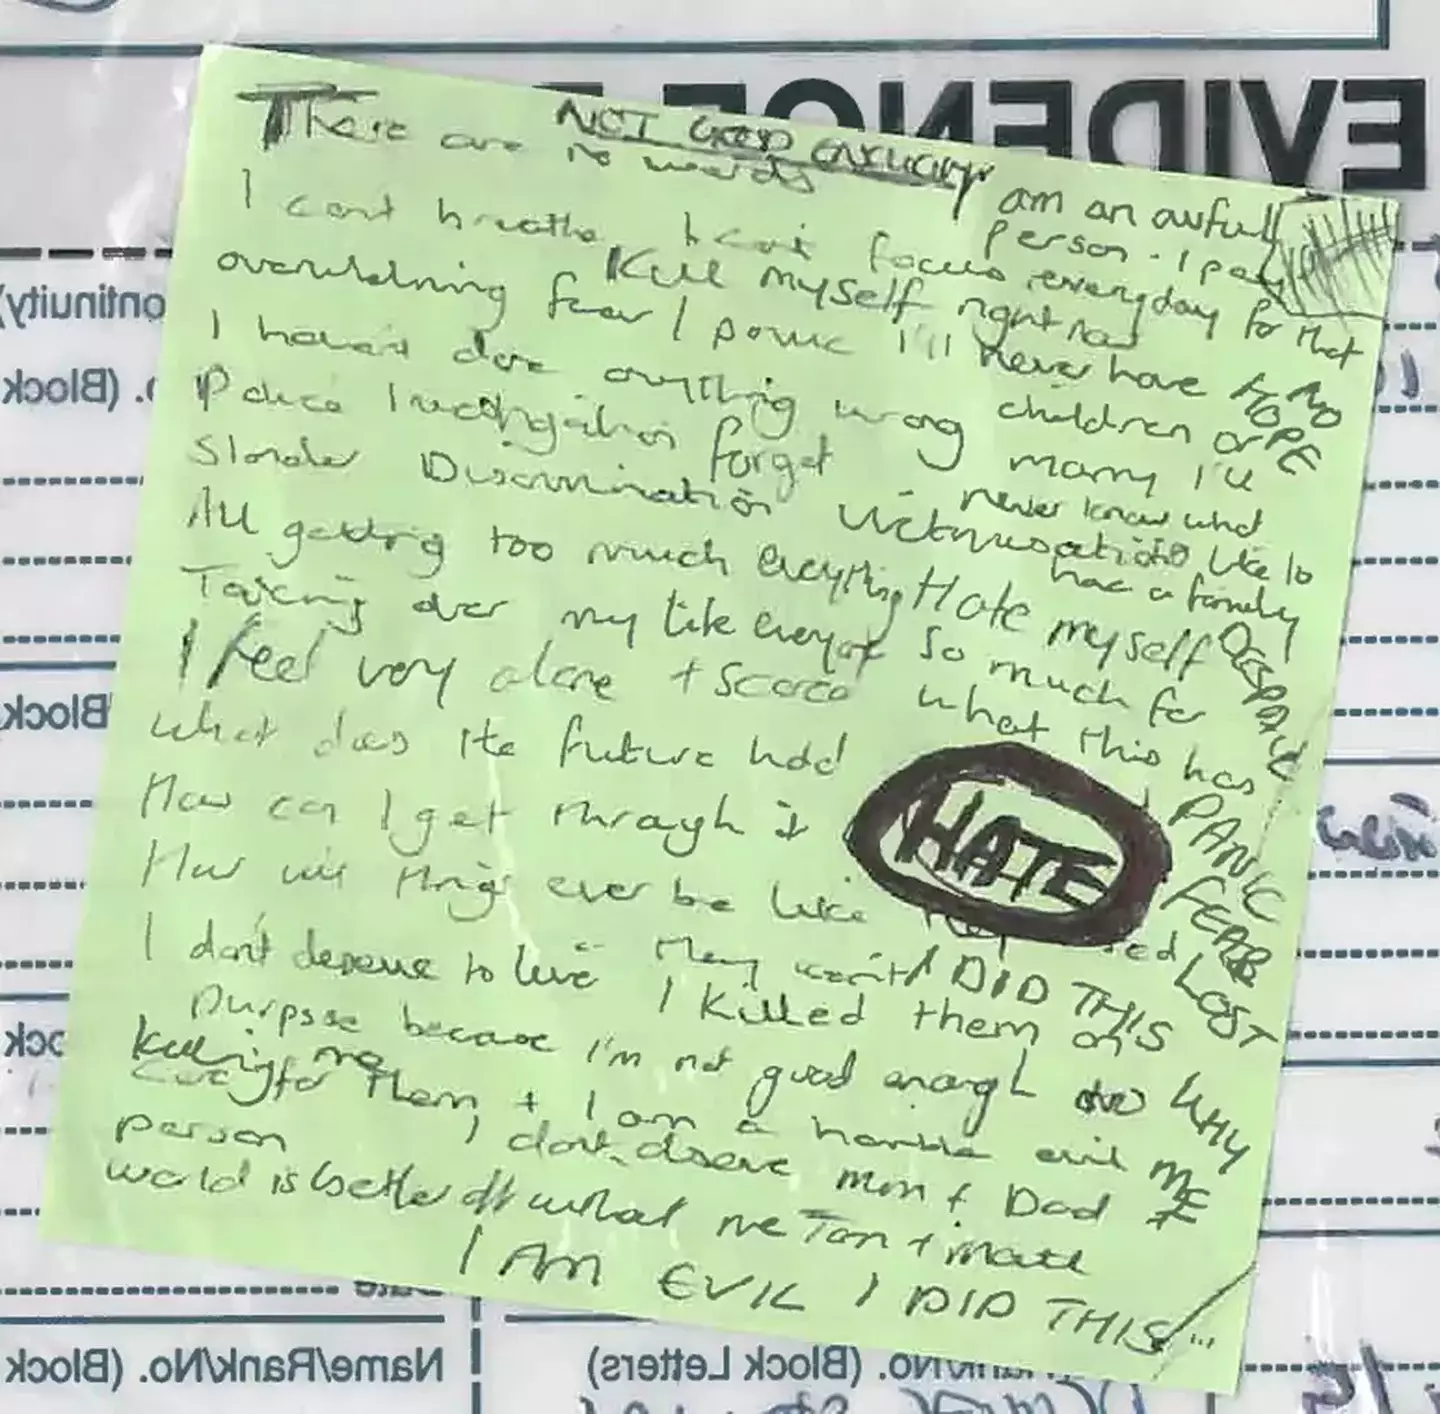 EVIDENCE
NOT GOOD ENOUGH
There are no words
I am an awful
person. I pay
I can't breathe I can't focus everyday for that
overwhelming fear / panic I'll never have
Kill myself right now
NO
HOPE
I haven't done anything wrong children or
Police Investigation forget marry I'll
never know what
Slander Discrimination Victimisation its like to
have a family
All getting too much everything Hate myself
Taking over my life everyone so much for
DESPAIR
I feel very alone + scared what this has
What does the future hold
PANIC
How can I get through it
HATE
FEAR
How will things ever be like
LOST
I don't deserve to live They won't I DID THIS
I killed them on
purpose because I'm not good enough to
WHY
ME
Killing me
care for them + I am a horrible evil
person I don't deserve mum + Dad
world is better off without me Tom + Matt
I AM EVIL I DID THIS
(Block
Name/Rank/No. (Block
Rank/No. (Block Letters)